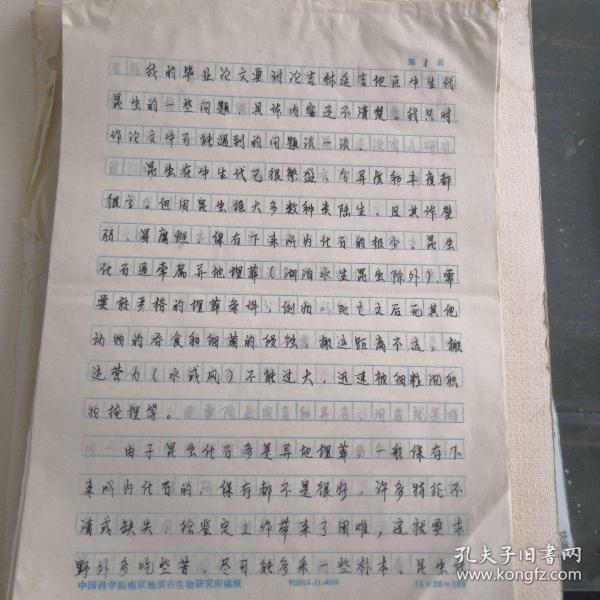 第 1 页
我的毕业论文要讨论吉林延吉地区中生代
昆虫的一些问题，具体内容还不清楚。我只对
作论文中可能遇到的问题谈一谈。
昆虫在中生代已很繁盛，分异度和丰度都
很高。但因昆虫绝大多数种类陆生，且其体壁
弱，易腐烂，保存下来成为化石的极少。昆虫
化石通常属异地埋葬（湖泊水生昆虫除外），需
要较严格的埋葬条件，例如，死亡之后无其他
动物的吞食和细菌的侵蚀，搬运距离不远，搬
运营力（水或风）不能过大，迅速被细粒沉积
物掩埋等。
由于昆虫化石多是异地埋葬，一般保存下
来成为化石的 保存都不是很好，许多特征不
清或缺失，给鉴定工作带来了困难，这就要求
野外多吃些苦，尽可能多采一些标本，昆虫
中国科学院南京地质古生物研究所稿纸
15×20=300
孔夫子旧书网
book.kongfz.com